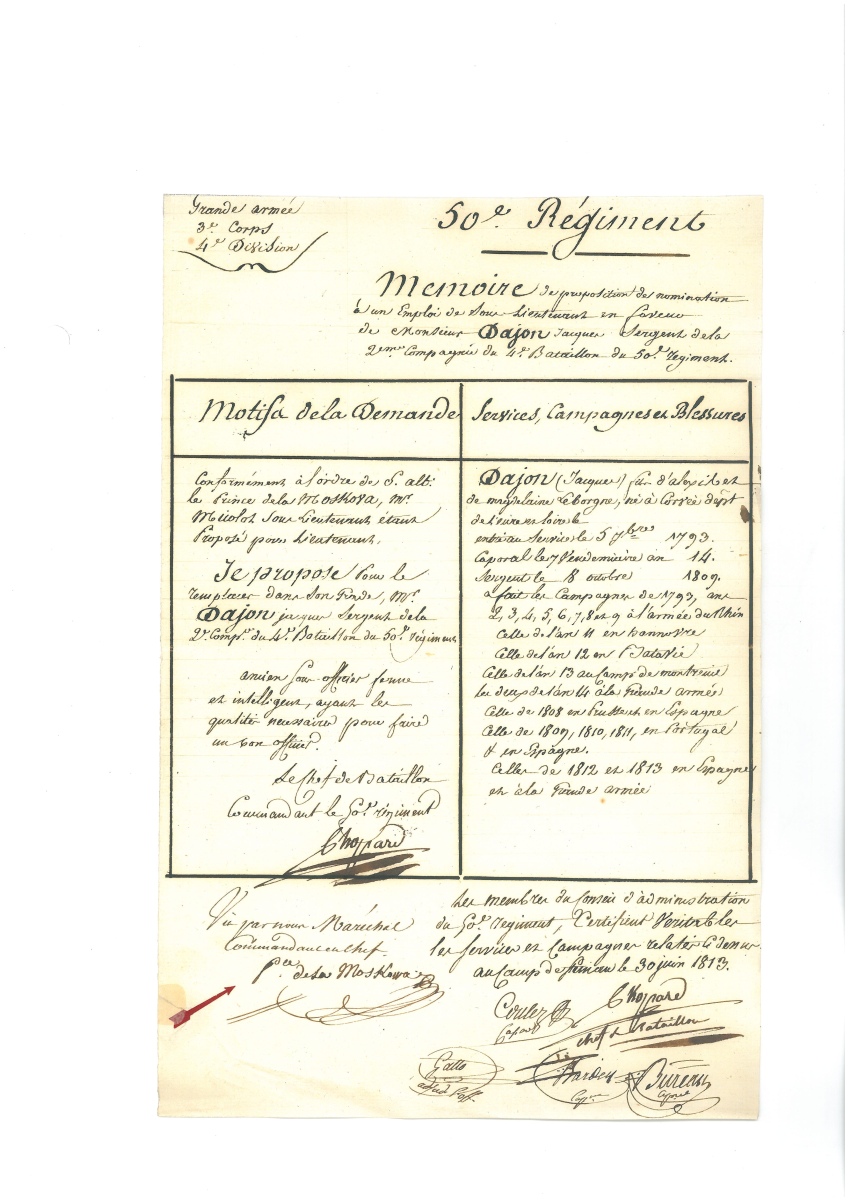 Grande armée
3e Corps
4e Division
50e Régiment
Memoire de proposition de nomination
à un Emploi de Sous Lieutenant en faveur
de Monsieur Dajon Jacques Sergent de la
2eme Compagnie du 4e Bataillon du 50e regiment.
Motifs de la Demande
Conformément à l'ordre de S. alt:
le Prince de la Moskova, Mr.
Sous Lieutenant étant
Proposé pour Lieutenant.
Je propose Pour le
remplacer dans son Grade, Mr.
Dajon jacques Sergent de la
2e Compe. du 4e Bataillon du 50e régiment
ancien sous officier ferme
et intelligent, ayant les
qualités necessaires pour faire
un bon officier.
Le Chef de Bataillon
Commandant le 50e régiment
Chopard
Services, Campagnes et Blessures
Dajon (Jacques) fils d' et
de magdelaine Leborgne, né à Corvée dept
de l'eure et loire le
entré au Service le 5 7bre 1793.
Caporal le 7 Vendemiaire an 14.
Sergent le 8 octobre 1809.
a fait les Campagnes de 1793, ans
2, 3, 4, 5, 6, 7, 8 et 9 à l'armée du Rhin
Celle de l'an 11 en hannovre
Celle de l'an 12 en Batavie
Celle de l'an 13 au Camp de montreuil
les deux de l'an 14 à la Grande armée
Celle de 1808 en Prusse et en Espagne
Celle de 1809, 1810, 1811, en Portugal
& en Espagne.
Celles de 1812 et 1813 en Espagne
et à la Grande armée
Vu par nous Maréchal
Commandant en Chef.
Pce de la Moskowa
Les membres du Conseil d'administration
du 50e regiment, Certifient Veritables
les Services et Campagnes relatés ci dessus
au Camp de le 30 juin 1813.
Chopard
Chef de Bataillon
Bureau